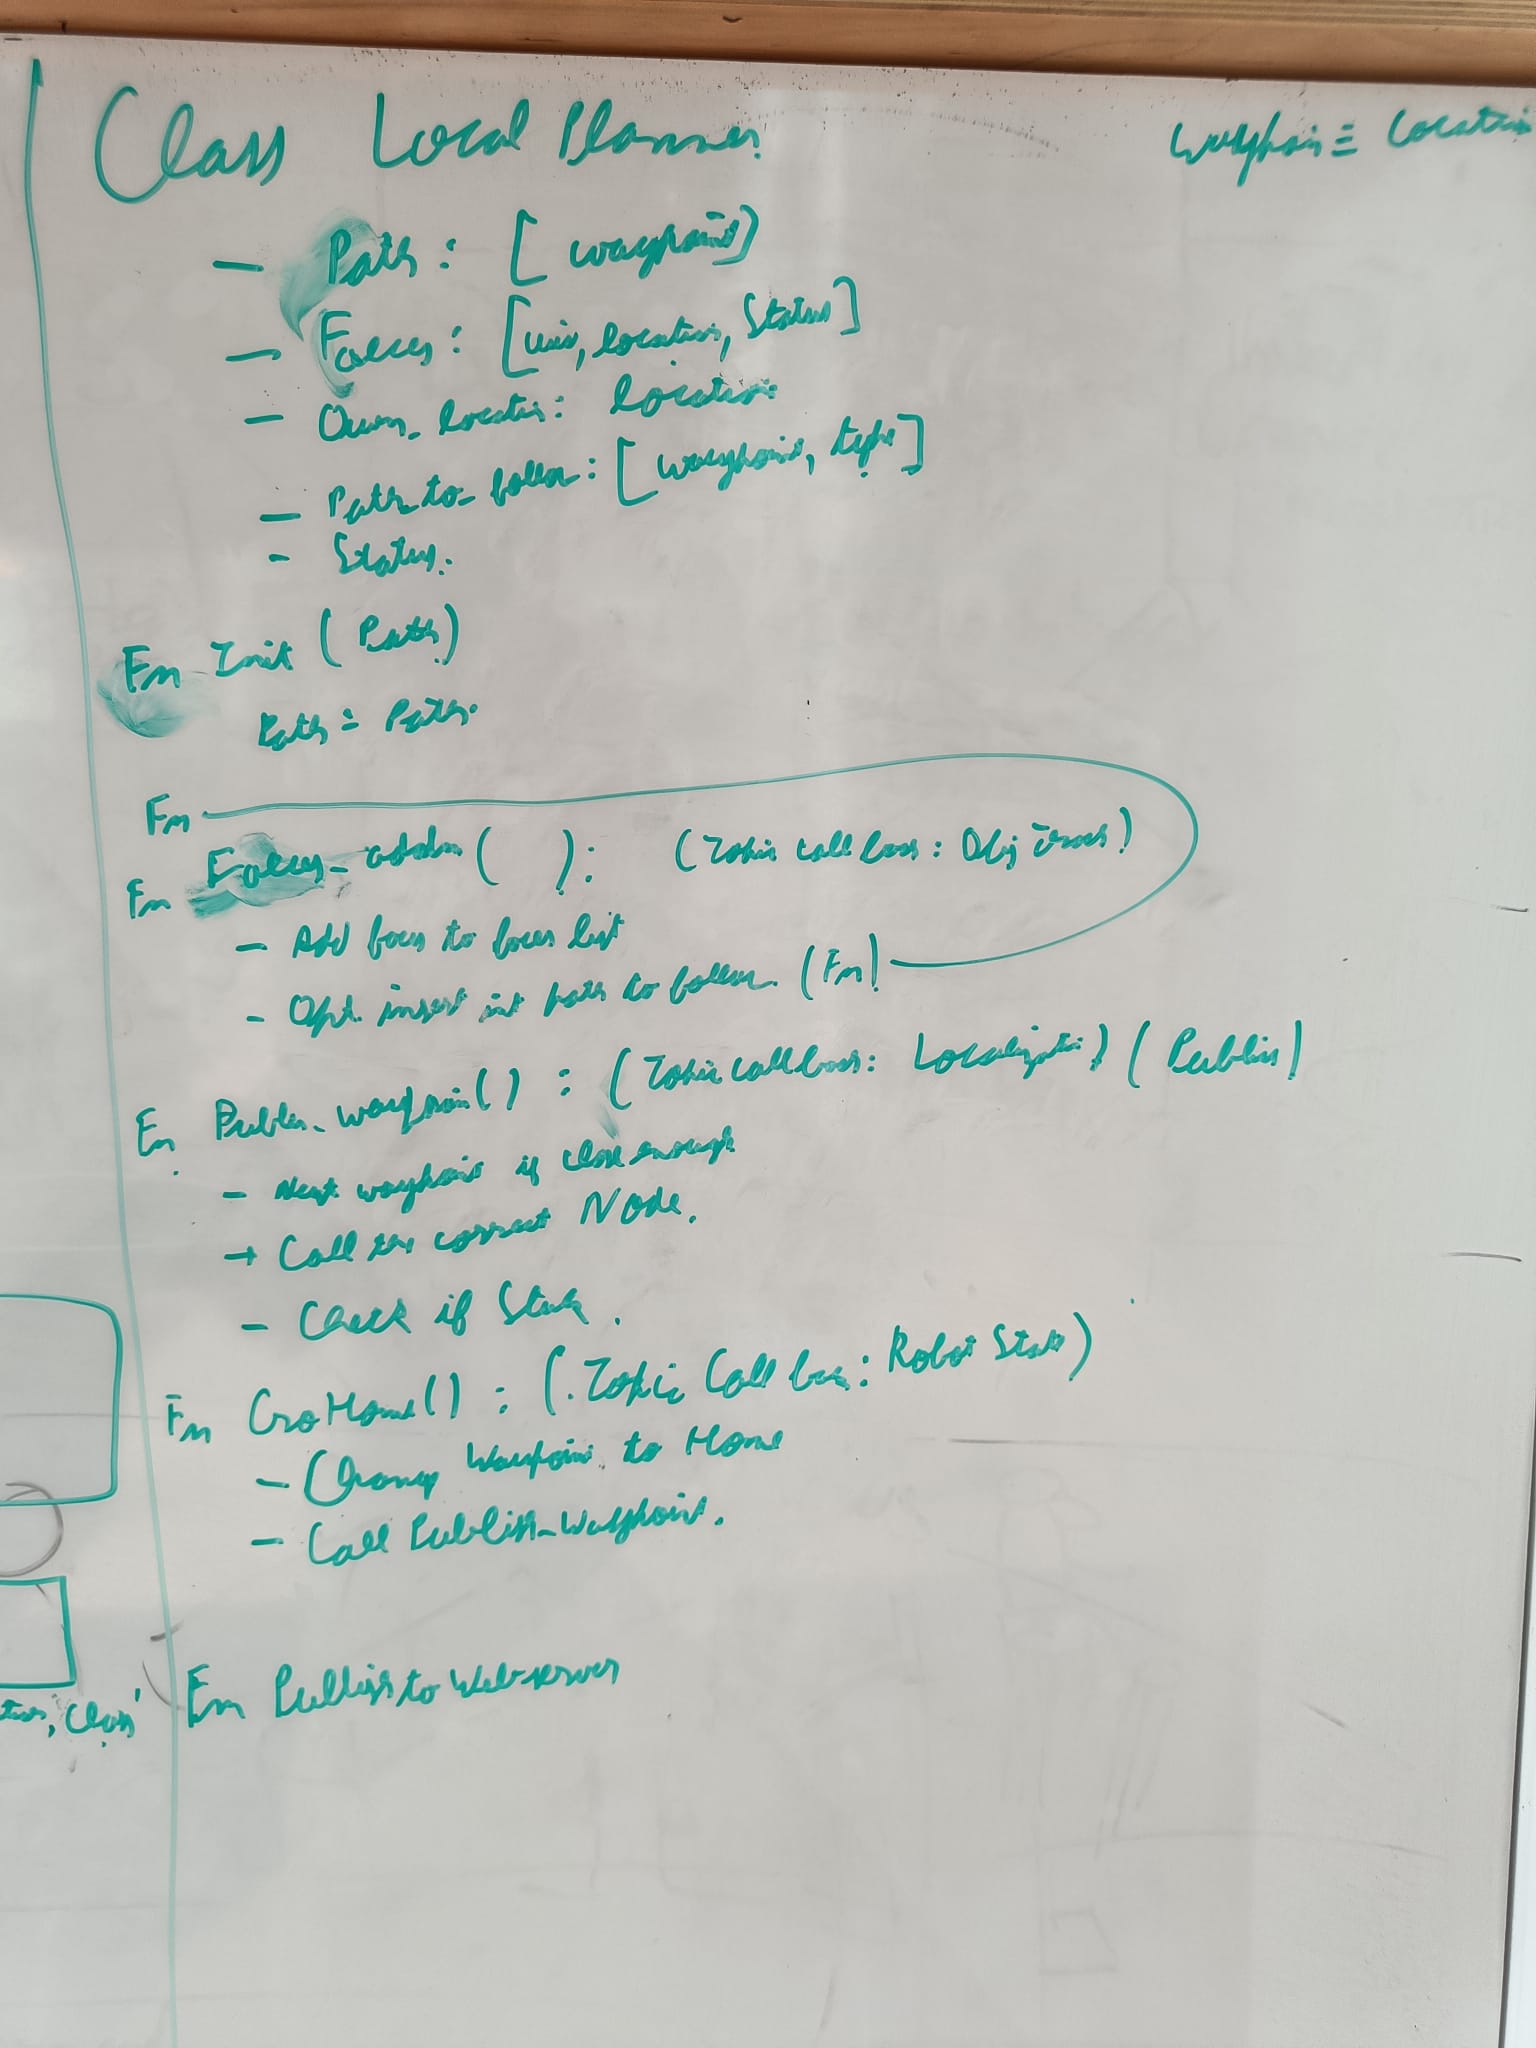 Class Local Planner
Waypoin = Location
- Path : [ waypoint]
- : [ , location, Status]
- Own_location : location
- Path_to_follow : [ waypoint, type]
- Status.
Fn Init ( Path)
Path = Path.
Fn
Fn ( ) : (Topic call back : Obj )
- Add to list
- Opt. insert int path to follow (Fn)
Fn Publish_waypoin() : (Topic call back : ) (Publish)
- Next waypoint if close enough
+ Call the correct Node.
- Check if Stuck.
Fn GoHome() : (.Topic Call back : Robot State)
- Change Waypoint to Home
- Call Publish_Waypoint.
Fn Publish to Webserver
Class